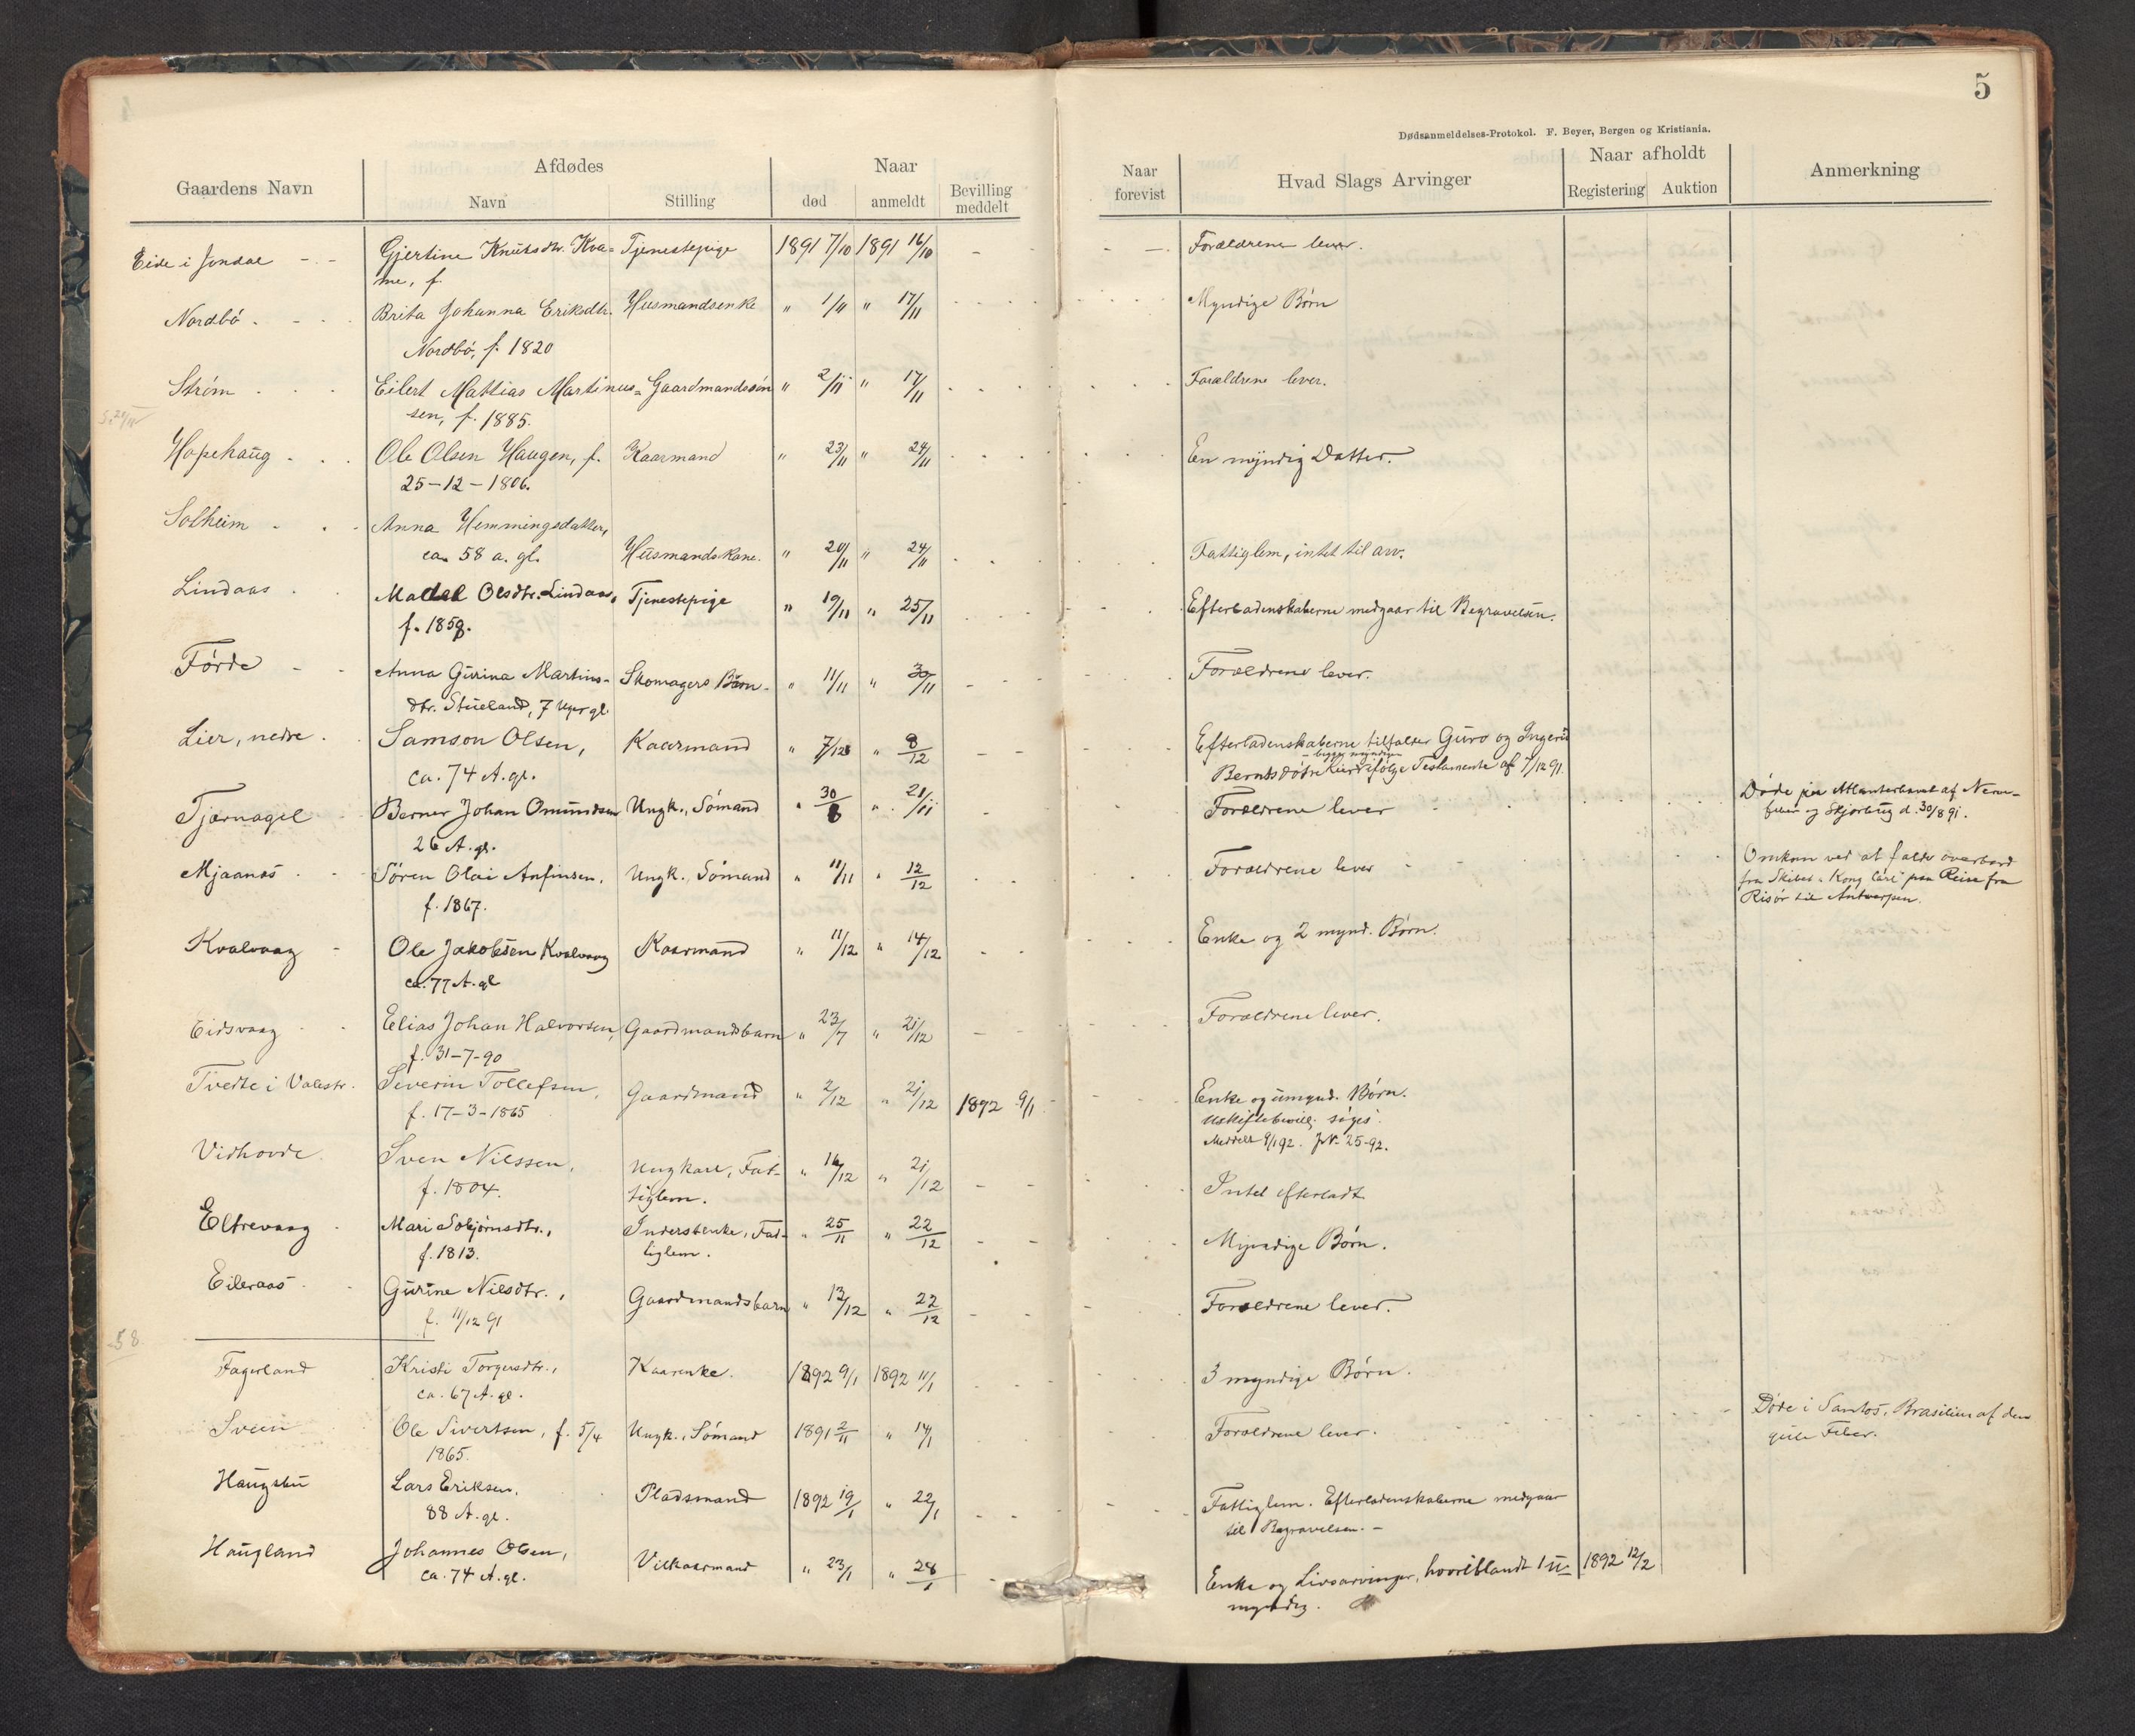 5
Dødsanmeldelses-Protokol. F. Beyer, Bergen og Kristiania.
Gaardens Navn
Afdødes
Navn
Stilling
Naar
død
anmeldt
Bevilling meddelt
Naar forevist
Hvad Slags Arvinger
Naar afholdt
Registering
Auktion
Anmerkning
Eide i Jondal Gjertine Knutsdtr. Kva= Tjenestepige 1891 7/10 1891 16/10 Forældrene lever.
me, f.
Nordbö Brita Johanna Eriksdtr. Husmandsenke " 1/11 " 17/11 Myndige Børn
Nordbö, f. 1820
Ström Eilert Mattias Martinus= Gaardmandssön " 2/11 " 17/11 Forældrene lever.
sen, f. 1885.
Hopehaug Ole Olsen Haugen, f. Kaarmand " 23/11 " 24/11 En myndig Datter.
25-12-1806.
Solheim Anna Hemmingsdatter,
ca. 58 a. gl. Husmandskone. " 20/11 " 24/11 Fattiglem, intet til arv.
Lindaas Madel Olsdtr. Lindaas, Tjenestepige " 19/11 " 25/11 Efterladenskaberne medgaar til Begravelsen.
Förde Anna Gurina Martins- Skomagers Barn " 11/11 " 30/11 Forældrene lever.
dtr. Stueland, 7 Uger gl.
Lier, nedre Samson Olsen, Kaarmand " 7/12 " 8/12 Efterladenskaberne tilfalder Guro og Ingerid
begge myndige
ca. 74 A. gl. Berntsdøtre Lier ifölge Testamente af 7/12 91.
Tjernagel Berner Johan Omundsen Ungk., Sömand " 30/8 " 21/11 Forældrene lever Döde paa Atlanterhavet af Nerve-
26 A. gl. feber og Skjörbug d. 30/8 91.
Mjaanæs Sören Olai Anfinsen, Ungk., Sömand " 11/11 " 12/12 Forældrene lever Omkom ved at falde overbord
f. 1867. fra Skibet "Kong Carl" paa Reise fra
Risör til Antwerpen.
Kvalvaag Ole Jakobsen Kvalvaag Kaarmand " 11/12 " 14/12 Enke og 2 mynd. Börn.
ca. 77 A. gl
Eidsvaag Elias Johan Halvorsen, Gaardmandsbarn " 23/7 " 21/12 Forældrene lever.
f. 31-7-90
Tvedte i Valestr. Severin Tollefsen, Gaardmand " 2/12 " 21/12 1892 9/1 Enke og umynd. Børn.
f. 17-3-1865 Uskiftebevill. söges.
Meddelt 9/1 92. JN. 25-92.
Vidhovde Sven Nilssen, Ungkarl, Fat- " 16/12 " 21/12 Intet efterladt
f. 1804. tiglem.
Eltrevaag Mari Asbjörnsdtr., Inderstenke, Fat- " 25/11 " 22/12 Myndige Børn.
f. 1813. tiglem.
Eileraas Gurine Nilsdtr., Gaardmandsbarn " 13/12 " 22/12 Forældrene lever.
f. 11/12 91
58
Fagerland Kristi Torgersdtr., Kaarenke. 1892 9/1 1892 11/1 3 myndige Børn.
ca. 67 A. gl.
Svein Ole Sivertsen, f. 5/4 Ungk., Sömand 1891 2/11 " 14/1 Forældrene lever. Döde i Santos, Brasilien af den
1865. gule Feber.
Haugsbu Lars Eriksen, Pladsmand 1892 19/1 " 22/1 Fattiglem. Efterladenskaberne medgaar
88 A. gl. til Begravelsen. -
Haugland Johannes Olsen, Vilkaarmand " 23/1 " 28/1 Enke og Livsarvinger, hvoriblandt 1 u= 1892 12/2
ca. 74 A. gl. myndig.